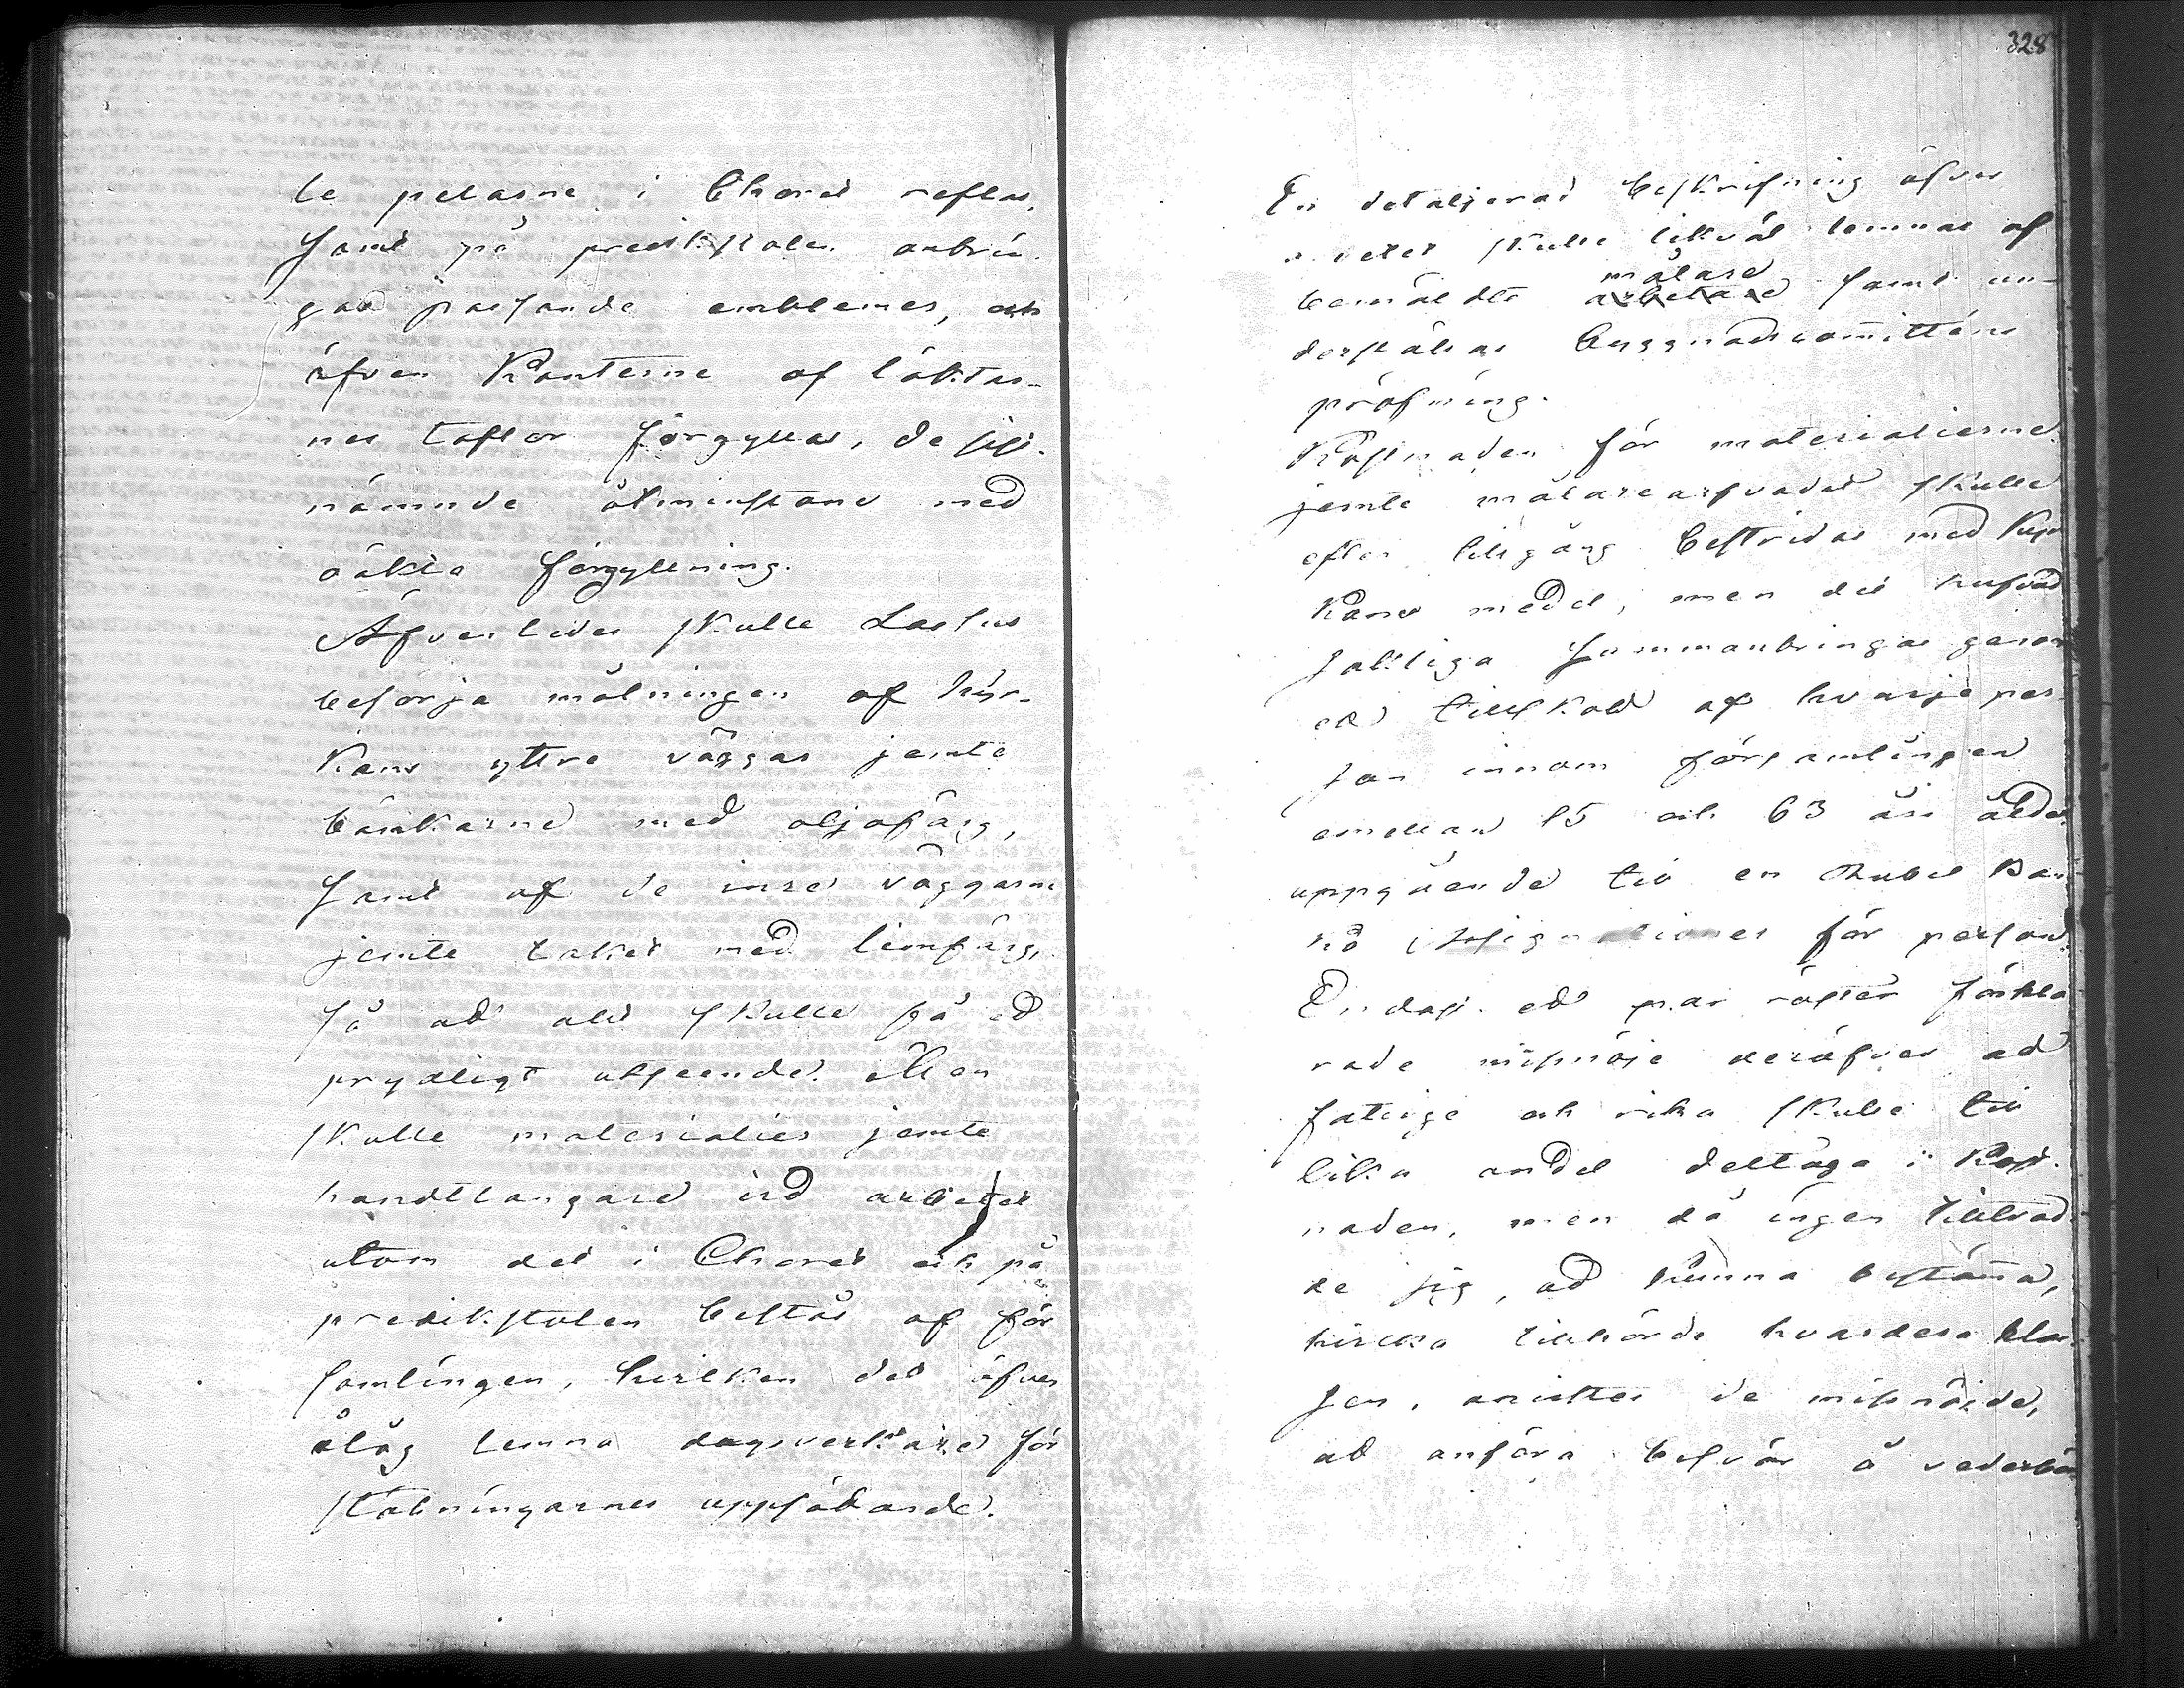 le pelarne i Choret reflas,
samt på predikstolen anbrin-
gas passande emblemer, och
äfven Kanterne af läktar-
nes taflor förgyllas, de sist-
nämnde åtminstone med
oäkta förgyllning.
Äfvenledes skulle Laslus
besörja målningen af kyr-
kans yttre väggar jemte
bänkarne med oljofärg,
samt af de inre väggarne
jemte taket med limfärg,
så att allt skulle få ett
prydligt utseende. Men
skulle materialier jemte
handtlangare vid arbetet
utom det i Choret och på
predikstolen bestås af för
samlingen, hvilken det äfven
ålåg lemna dagsverkare för
stälningarnes uppsättande.
328
En detaljerad beskrifning öfver
arbetet skulle likväl lemnas af
målare
bemäldte arbetare samt un-
derställas Byggnadscommitténs
pröfning.
Kostnaden för materialierne
jemte målarearfvodet skulle
efter tillgång bestridas med Kyr
kans medel, men det hufvud
sakliga sammanbringas genom
ett tillskott af hvarje per-
son innom församlingen
emellan 15 och 63 års ålder
uppgående till en Rubel Ban
ko Assignationer för person.
Endast ett par röster förkla
rade missnöje deröfver att
fattige och rika skulle till
lika andel deltaga i Kost-
naden, men då ingen tilltrod-
de sig, att kunna bestämma,
hvilka tillhörde hvardera klas-
sen, anvistes de missnöjde,
att anföra besvär å vederbör